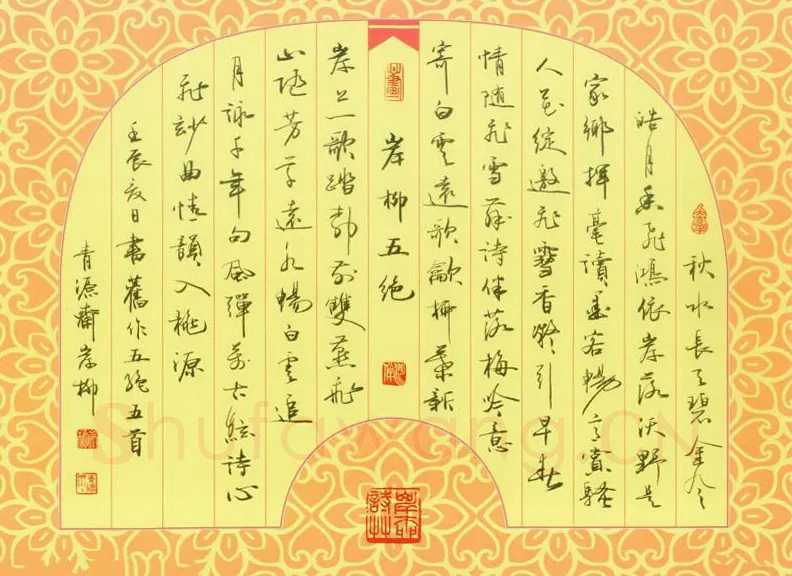 秋水長天碧金
皓月香飛鴻依岸落沃野是
家鄉揮毫讀墨客暢言賞騷
人花綻邀飛雪香凝引早春
情隨飛雪舞詩伴落梅吟意
寄白雲遠歌新
岸柳五絕
岸上一歌踏雙燕飛
山隨芳草遠水暢白雲追
月詠千年句風彈萬古絃詩心
飛妙曲情韻入桃源
壬辰夏日書舊作五絕五首
青源齋岸柳
Shufawang.CN